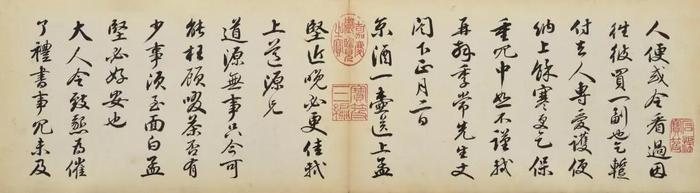 人便或令看過因
往彼買一副也乞暫
付去人專愛護便
納上餘寒更乞保
重冗中恕不謹軾
再拜季常先生丈
閤下正月二日
京酒一壺送上孟
堅近晚必更佳軾
上道源兄
道源無事只今可
能枉顧啜茶否有
少事須至面白孟
堅必好安也
大人令致懇為催
了禮書事冗未及
嘉慶御覽之寶
寶笈三編
石渠寶笈